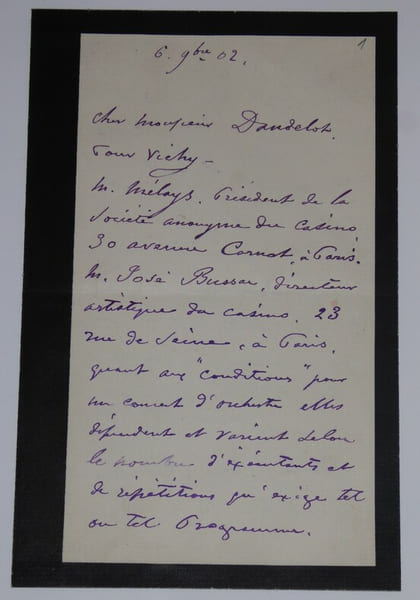 1
6. 9bre 02.
Cher Monsieur Dandelot.
Pour Vichy –
M. Mélays. Président de la
Société anonyme du Casino
30 avenue Carnot, à Paris.
M. José Bussac, directeur
artistique du casino. 23
rue de Seine, à Paris.
quant aux "conditions" pour
un concert d'orchestre elles
dépendent et varient selon
le nombre d'exécutants et
de répétitions qu'exige tel
ou tel Programme.